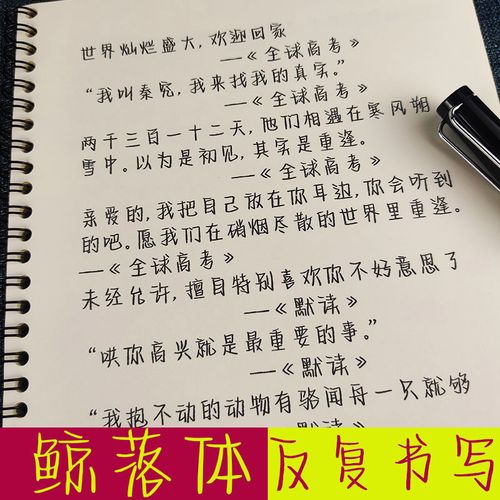 世界灿烂盛大，欢迎回家
—《全球高考》
“我叫秦究，我来找我的真实。”
—《全球高考》
两千三百一十二天，他们相遇在寒风朔
雪中。以为是初见，其实是重逢。
—《全球高考》
亲爱的，我把自己放在你耳边，你会听到
的吧。愿我们在硝烟尽散的世界里重逢。
—《全球高考》
未经允许，擅自特别喜欢你不好意思了
—《默读》
“哄你高兴就是最重要的事。”
—《默读》
“我抱不动的动物有骆闻舟一只就够
—《默读》
鲸落体 反复书写